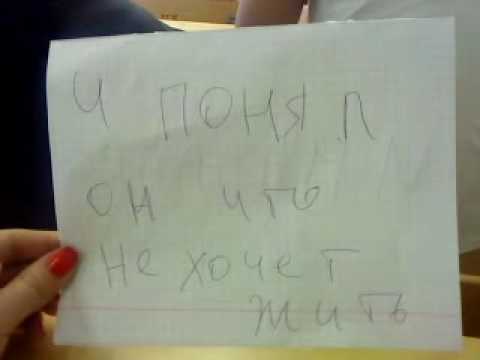 И понял
он что
не хочет
жить